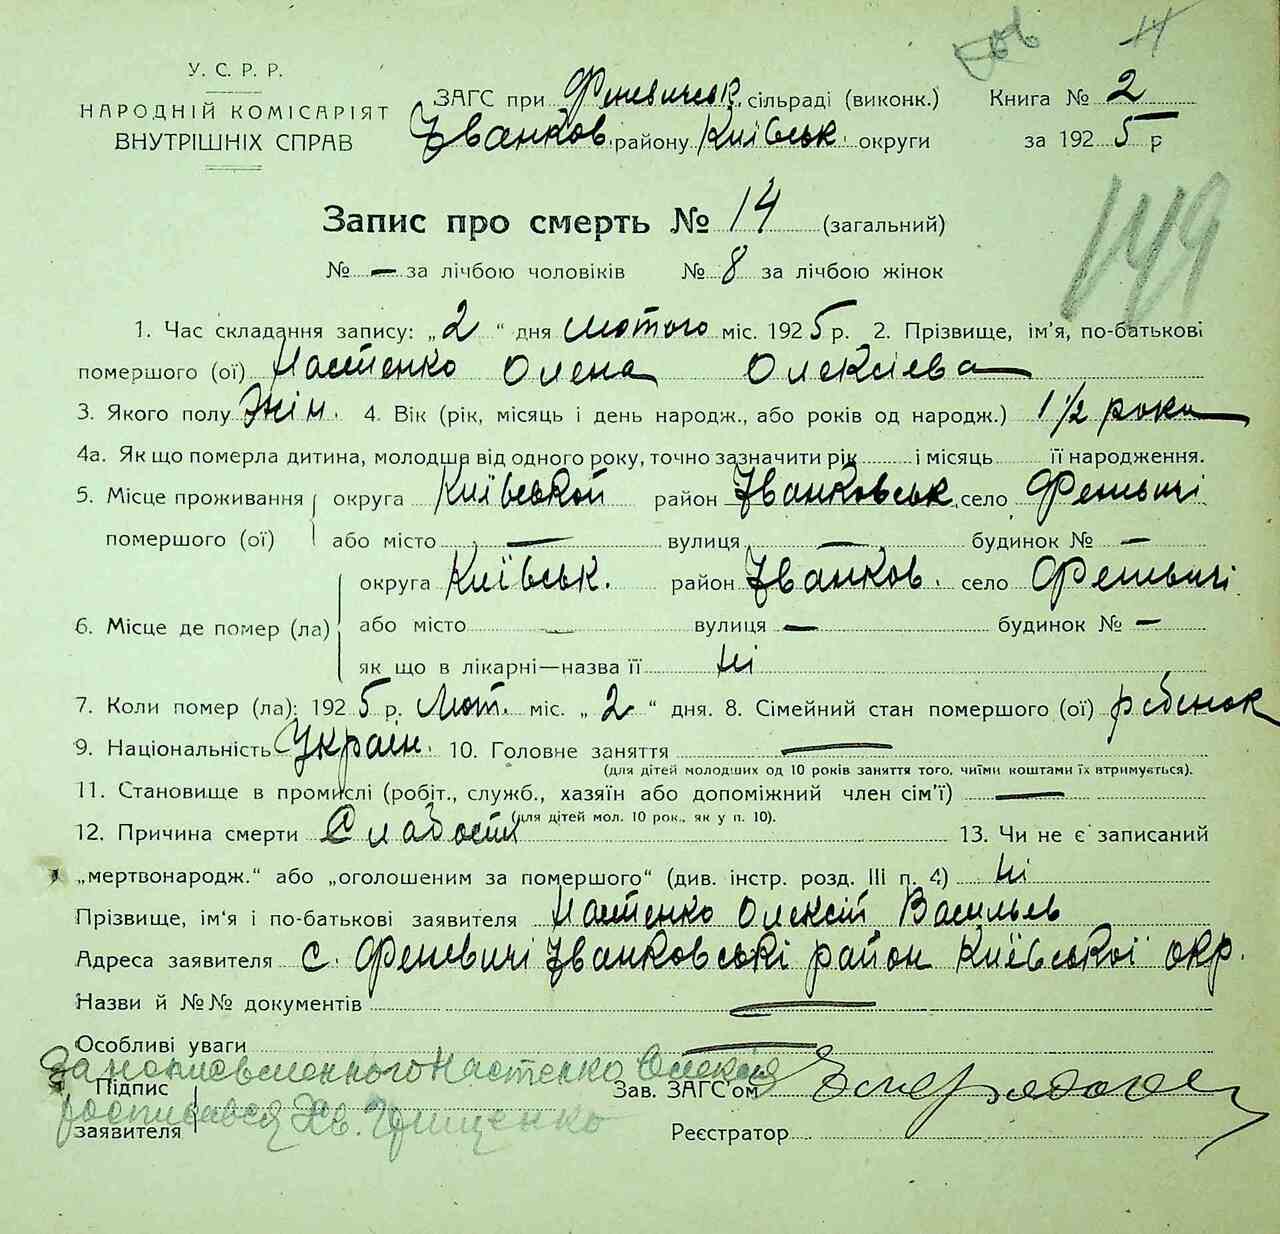 У. С. Р. Р.
НАРОДНІЙ КОМІСАРІЯТ
ВНУТРІШНІХ СПРАВ
ЗАГС при Феневицьк. сільраді (виконк.)
Іванков. району Київськ. округи
Книга № 2
за 1925 р
149
Запис про смерть № 14 (загальний)
№ — за лічбою чоловіків № 8 за лічбою жінок
1. Час складання запису: „2“ дня лютого міс. 1925 р. 2. Прізвище, ім'я, по-батькові
помершого (ої) Настенко Олена Олексієва
3. Якого полу Жін. 4. Вік (рік, місяць і день народж., або років од народж.) 1 1/2 роки
4а. Як що померла дитина, молодша від одного року, точно зазначити рік і місяць її народження.
5. Місце проживання округа Київської район Іванковськ. село Феневичі
помершого (ої) або місто — вулиця — будинок № —
округа Київськ. район Іванков. село Феневичі
6. Місце де помер (ла) або місто — вулиця — будинок № —
як що в лікарні—назва її ні
7. Коли помер (ла): 1925 р. Лют. міс. „2“ дня. 8. Сімейний стан помершого (ої) рѣбенок
9. Національність Україн. 10. Головне заняття —
(для дітей молодших од 10 років заняття того, чиїми коштами їх втримується).
11. Становище в промислі (робіт., служб., хазяїн або допоміжний член сім'ї) —
(для дітей мол. 10 рок., як у п. 10).
12. Причина смерти Слабости 13. Чи не є записаний
„мертвонародж.“ або „оголошеним за помершого“ (див. інстр. розд. III п. 4) ні
Прізвище, ім'я і по-батькові заявителя Настенко Олексій Васильев
Адреса заявителя с. Феневичі Іванковські район Київської окр.
Назви й №№ документів —
Особливі уваги —
За неписьменного Настенко Олексія
Підпис
заявителя росписався Хв. Грищенко
Зав. ЗАГС'ом
Реєстратор